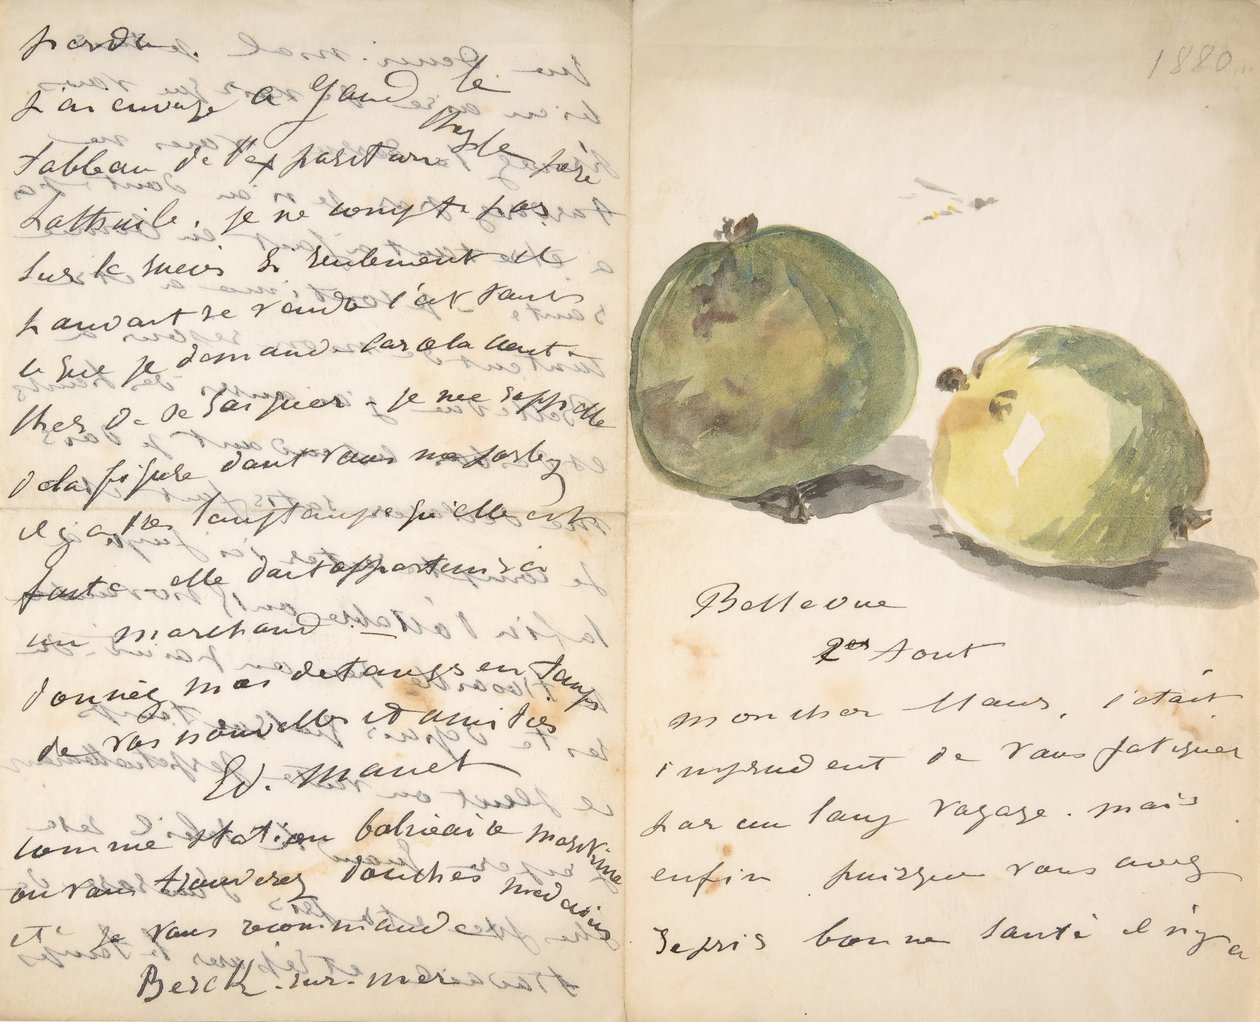 perdu.
j'ai envoyé a Gand le
tableau de l'exposition chez le père
Lathuile. je ne compte pas
sur le succès si seulement il
pouvait se vendre c'est tout
ce que je demande car cela coute
cher de se soigner - je me rappelle
de la figure dont vous me parlez
il y a très longtemps qu'elle est
faite elle doit appartenir à
un marchand. —
donnez moi de temps en temps
de vos nouvelles et amitiés
Ed. Manet
comme station balnéaire maritime
ou vous trouverez douches médecins
etc je vous recommande
Berck-sur-mer
1880
Bellevue
2 Aout
mon cher Maus, c'était
imprudent de vous fatiguer
par un long voyage. mais
enfin puisque vous avez
repris bonne santé il n'y a